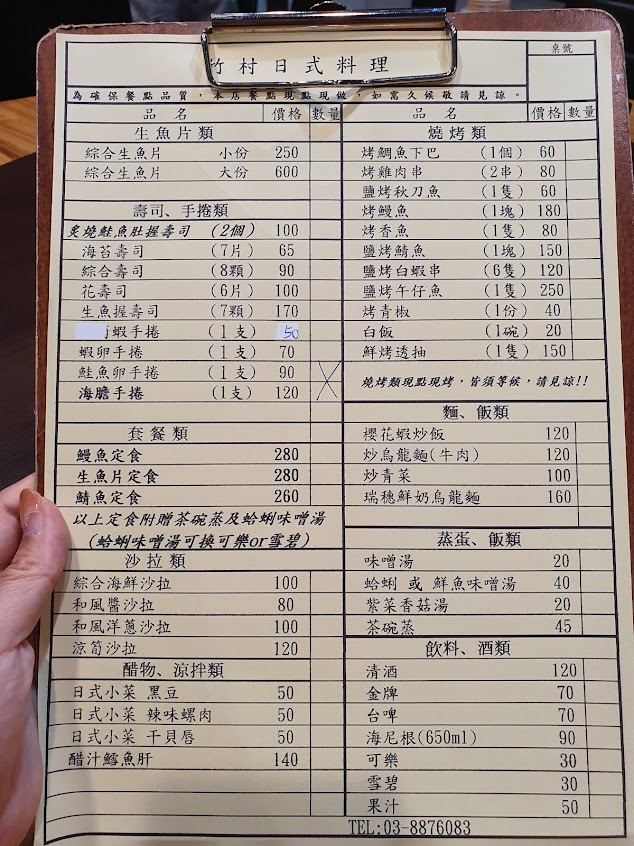 竹村日式料理
桌號
為確保餐點品質，本店餐點現點現做，如需久候敬請見諒。
品名 價格 數量
生魚片類
綜合生魚片 小份 250
綜合生魚片 大份 600
壽司、手捲類
炙燒鮭魚肚握壽司 (2個) 100
海苔壽司 (7片) 65
綜合壽司 (8顆) 90
花壽司 (6片) 100
生魚握壽司 (7顆) 170
蝦手捲 (1支) 50
蝦卵手捲 (1支) 70
鮭魚卵手捲 (1支) 90
海膽手捲 (1支) 120
套餐類
鰻魚定食 280
生魚片定食 280
鯖魚定食 260
以上定食附贈茶碗蒸及蛤蜊味噌湯
(蛤蜊味噌湯可換可樂or雪碧)
沙拉類
綜合海鮮沙拉 100
和風醬沙拉 80
和風洋蔥沙拉 100
涼筍沙拉 120
醋物、涼拌類
日式小菜 黑豆 50
日式小菜 辣味螺肉 50
日式小菜 干貝唇 50
醋汁鱈魚肝 140
品名 價格 數量
燒烤類
烤鯛魚下巴 (1個) 60
烤雞肉串 (2串) 80
鹽烤秋刀魚 (1隻) 60
烤鰻魚 (1塊) 180
烤香魚 (1隻) 80
鹽烤鯖魚 (1塊) 150
鹽烤白蝦串 (6隻) 120
鹽烤午仔魚 (1隻) 250
烤青椒 (1份) 40
白飯 (1碗) 20
鮮烤透抽 (1隻) 150
燒烤類現點現烤，皆須等候，請見諒!!
麵、飯類
櫻花蝦炒飯 120
炒烏龍麵(牛肉) 120
炒青菜 100
瑞穗鮮奶烏龍麵 160
蒸蛋、飯類
味噌湯 20
蛤蜊 或 鮮魚味噌湯 40
紫菜香菇湯 20
茶碗蒸 45
飲料、酒類
清酒 120
金牌 70
台啤 70
海尼根(650ml) 90
可樂 30
雪碧 30
果汁 50
TEL:03-8876083